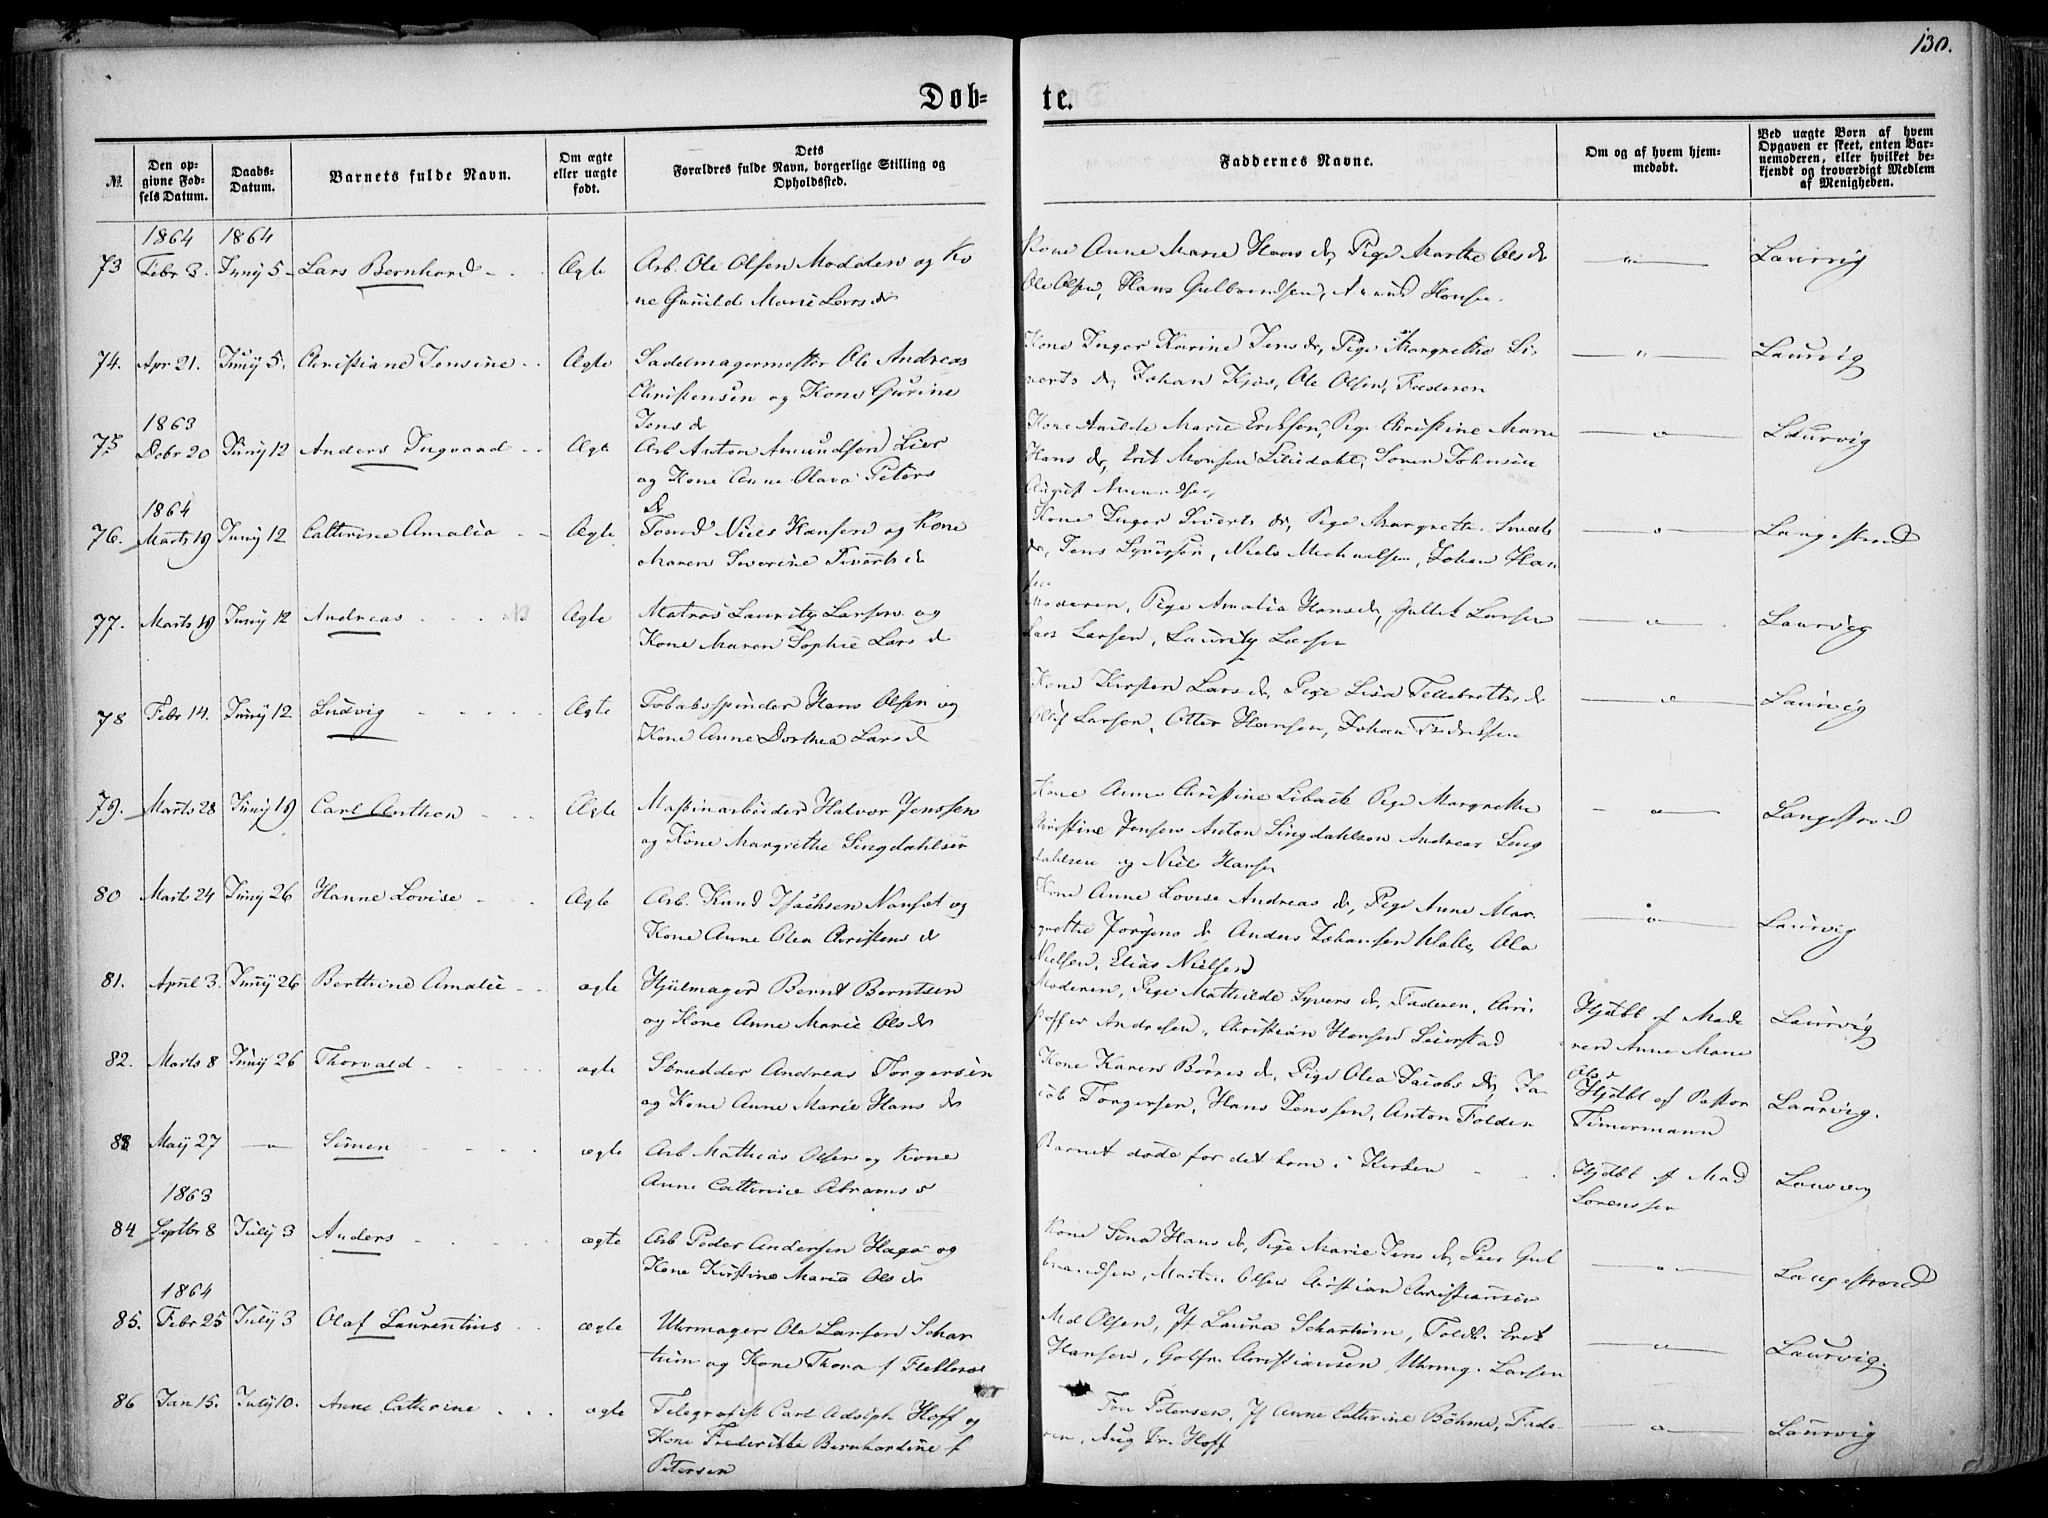 130.
Døb- te.
№
Den op-
givne Fød-
sels Datum.
Daabs-
Datum.
Barnets fulde Navn.
Om ægte
eller uægte
født.
Dets
Forældres fulde Navn, borgerlige Stilling og
Opholdssted.
Faddernes Navne.
Om og af hvem hjem-
medøbt.
Ved uægte Børn af hvem
Opgaven er skeet, enten Bar-
nemoderen, eller hvilket be-
kjendt og troværdigt Medlem
af Menigheden.
1864 1864
73 Febr 3. Juny 5 Lars Bernhard Ægte Arb. Ole Olsen Modden og Ko
ne Gunild Marie Lars d
Kone Anne Marie Hans d, Pige Marthe Ols d
Ole Olsen, Hans Gulbrandsen, Hansen.
" Laurvig
74. Apr 21. Juny 5. Christiane Jensine Ægte Sadelmagermester Ole Andreas
Christensen og Kone Gurine
Jens d
Kone Inger Karine Jens d, Pige Margrethe Si-
verts d, Johan Kjøs, Ole Olsen, Faderen
" Laurvig
1863
75 Debr 20 Juny 12 Anders Ingvard Ægte Arb Anton Amundsen Lier
og Kone Anne Olava Peters
D
Kone Marie Eriksen, Pige Christine Marie
Hans d, Erik Monsen Liledahl, Soren Johnsen
August Amundsen
o Laurvig
1864
76. Marts 19 Juny 12 Cathrine Amalia Ægte Niels Hansen og Kone
Maren Severine Siverts d
Kone Inger Siverts d, Pige Margrethe Siverts
d, Jens Syversen, Niels Michaelsen, Johan Han
sen
o Langestrand
77. Marts 19 Juny 12 Andreas Ægte Matros Lauritz Larsen og
Kone Maren Sophie Lars d
Moderen, Pige Amalia Hans d, Gullik Larsen
Lars Larsen, Lauritz Larsen
o Laurvig
78 Febr 14. Juny 12 Ludvig Ægte Tobaksspinder Hans Olsen og
Kone Anne Dorthea Lars d
Kone Kirsten Lars d, Pige Lisa Tellebretts d
Oluf Larsen, Otter Hansen, Johan Fredriksen
o Laurvig
79. Marts 28 Juny 19 Carl Anthon Ægte Maskinarbeider Halvor Jenssen
og Kone Margrethe Lingdahlsen
Kone Anne Christine Libaek Pige Margrethe
Christine Jensen Anton Lingdahlsen Andreas Ling
dahlsen og Niels Hansen
o Langestrand
80 Marts 24 Juny 26 Hanne Lovise Ægte Arb. Knud Isachsen Nanset og
Kone Anne Olea Christens d
Kone Anne Lovise Andreas d, Pige Anne Mar-
grethe Jørgens d, Anders Johansen Walle, Ole
Nielsen, Elias Nielsen
o Laurvig
81. April 3. Juny 26 Berthine Amalie ægte Hjulmager Bernt Berntsen
og Kone Anne Marie Ols d
Moderen, Pige Mathilde Syvers d, Faderen, Chri-
stoffer Andresen, Christian Hansen Seierstad
Hjdbt af Mode
ren Anne Marie
Ols d
Laurvig
82. Marts 8 Juny 26 Thorvald ægte Skrædder Andreas Torgersen
og Kone Anne Marie Hans d
Kone Karen Børres d, Pige Olea Jacobs d, Ja-
cob Torgersen, Hans Jenssen, Anton Folden
Hjdbt af Pastor
Timermann
Laurvig.
83 May 27 o Simen ægte Arb Mathias Olsen og Kone
Anne Cathrine Abrams d
Barnet døde før det kom i Kirken
Hjdbt af Mad
Sorenssen
Laurvig
1863
84 Septbr 8 July 3 Anders ægte Arb Peder Andersen Haga og
Kone Kirstine Maria Ols d
Kone Sina Hans d, Pige Marie Jens d, Peer Gul
brandsen, Martin Olsen Christian Christiansen
o Langestrand
1864
85. Febr 25 July 3 Olaf Laurentius ægte Uhrmager Ole Larsen Schar
tum og Kone Thora f
Md Olsen, Jf Laura Schartum, Toldb. Erik
Hansen, Christiansen, Uhrmg. Larsen
o Laurvig.
86 Jan 15. July 10. Anne Cathrine ægte Telegrafist Carl Adolph Hoff og
Kone Frederikke Bernhardine f
Petersen
Petersen, Jf Anne Cathrine Böhme, Fade
ren, Aug Fr. Hoff
o Laurvig